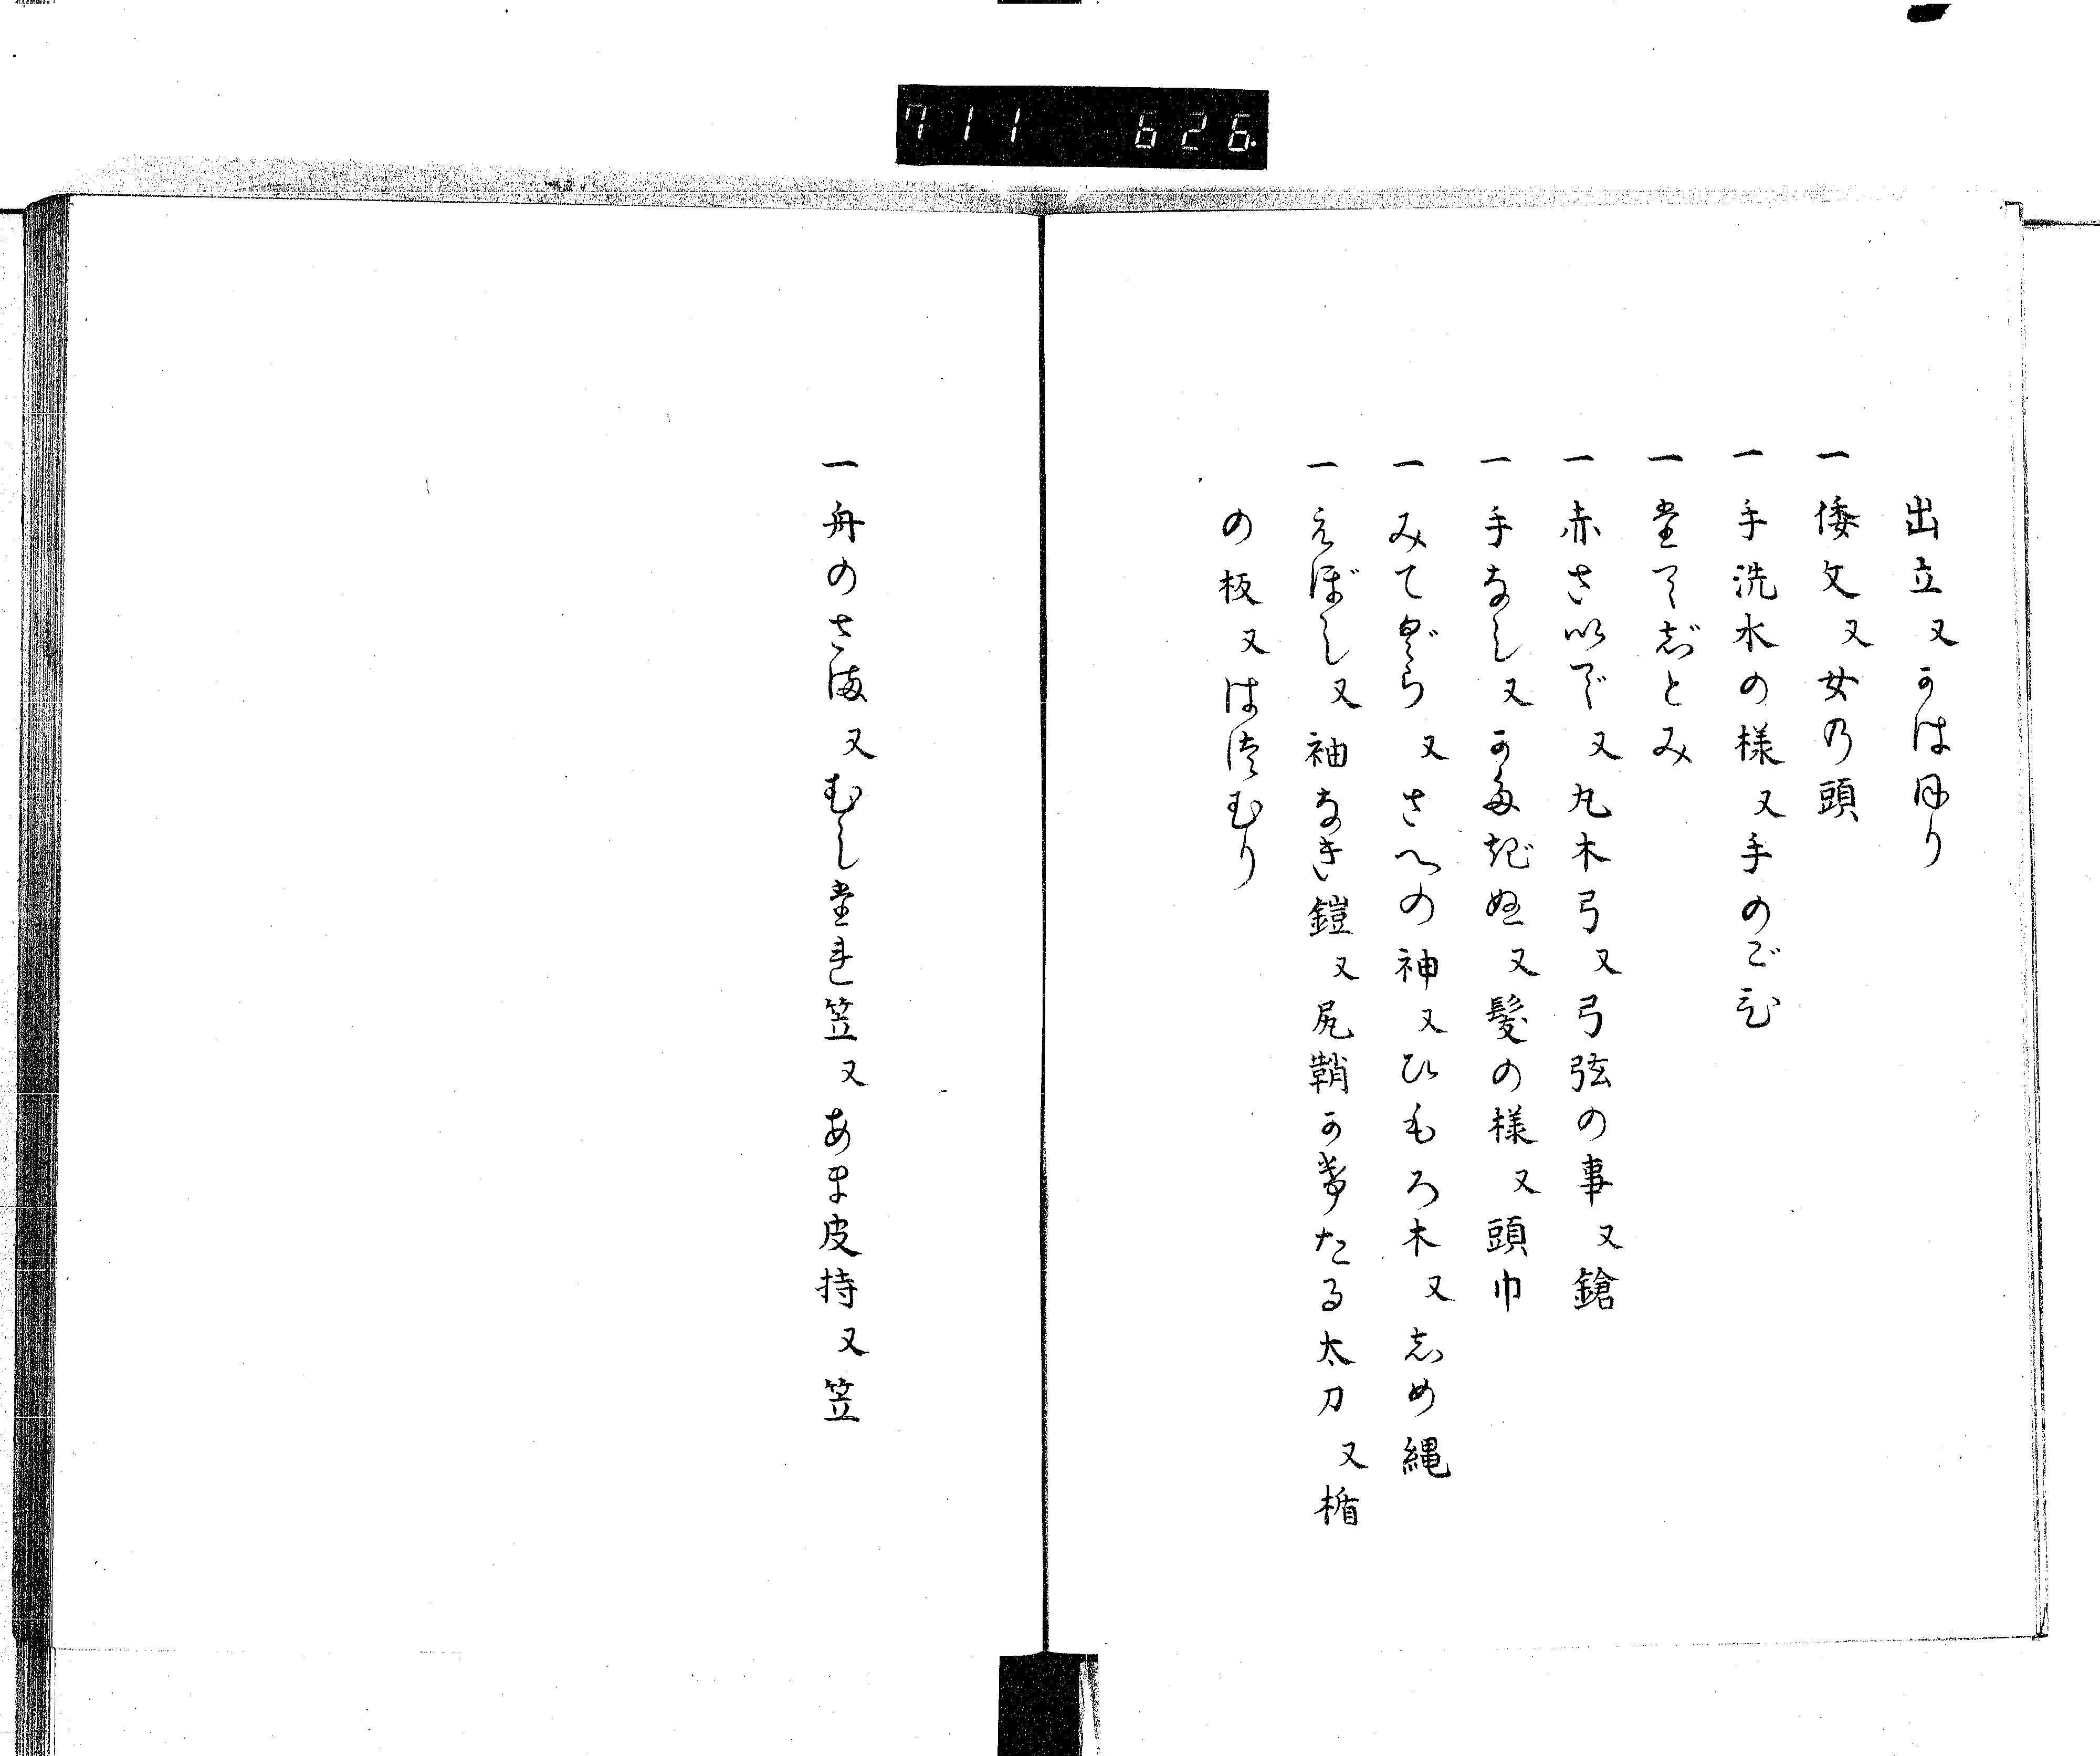 711 626
出立又かはほり
一倭文又女乃頭
一手洗水の様又手のごひ
一たてじとみ
一赤さいで又丸木弓又弓弦の事又鎗
一手なし又かたぎぬ又髪の様又頭巾
一みてぐら又さへの神又ひもろ木又しめ縄
一えぼし又袖なき鎧又尻鞘かけたる太刀又楯
の板又はほつむり
一舟のさま又むしたれ笠又あま皮持又笠